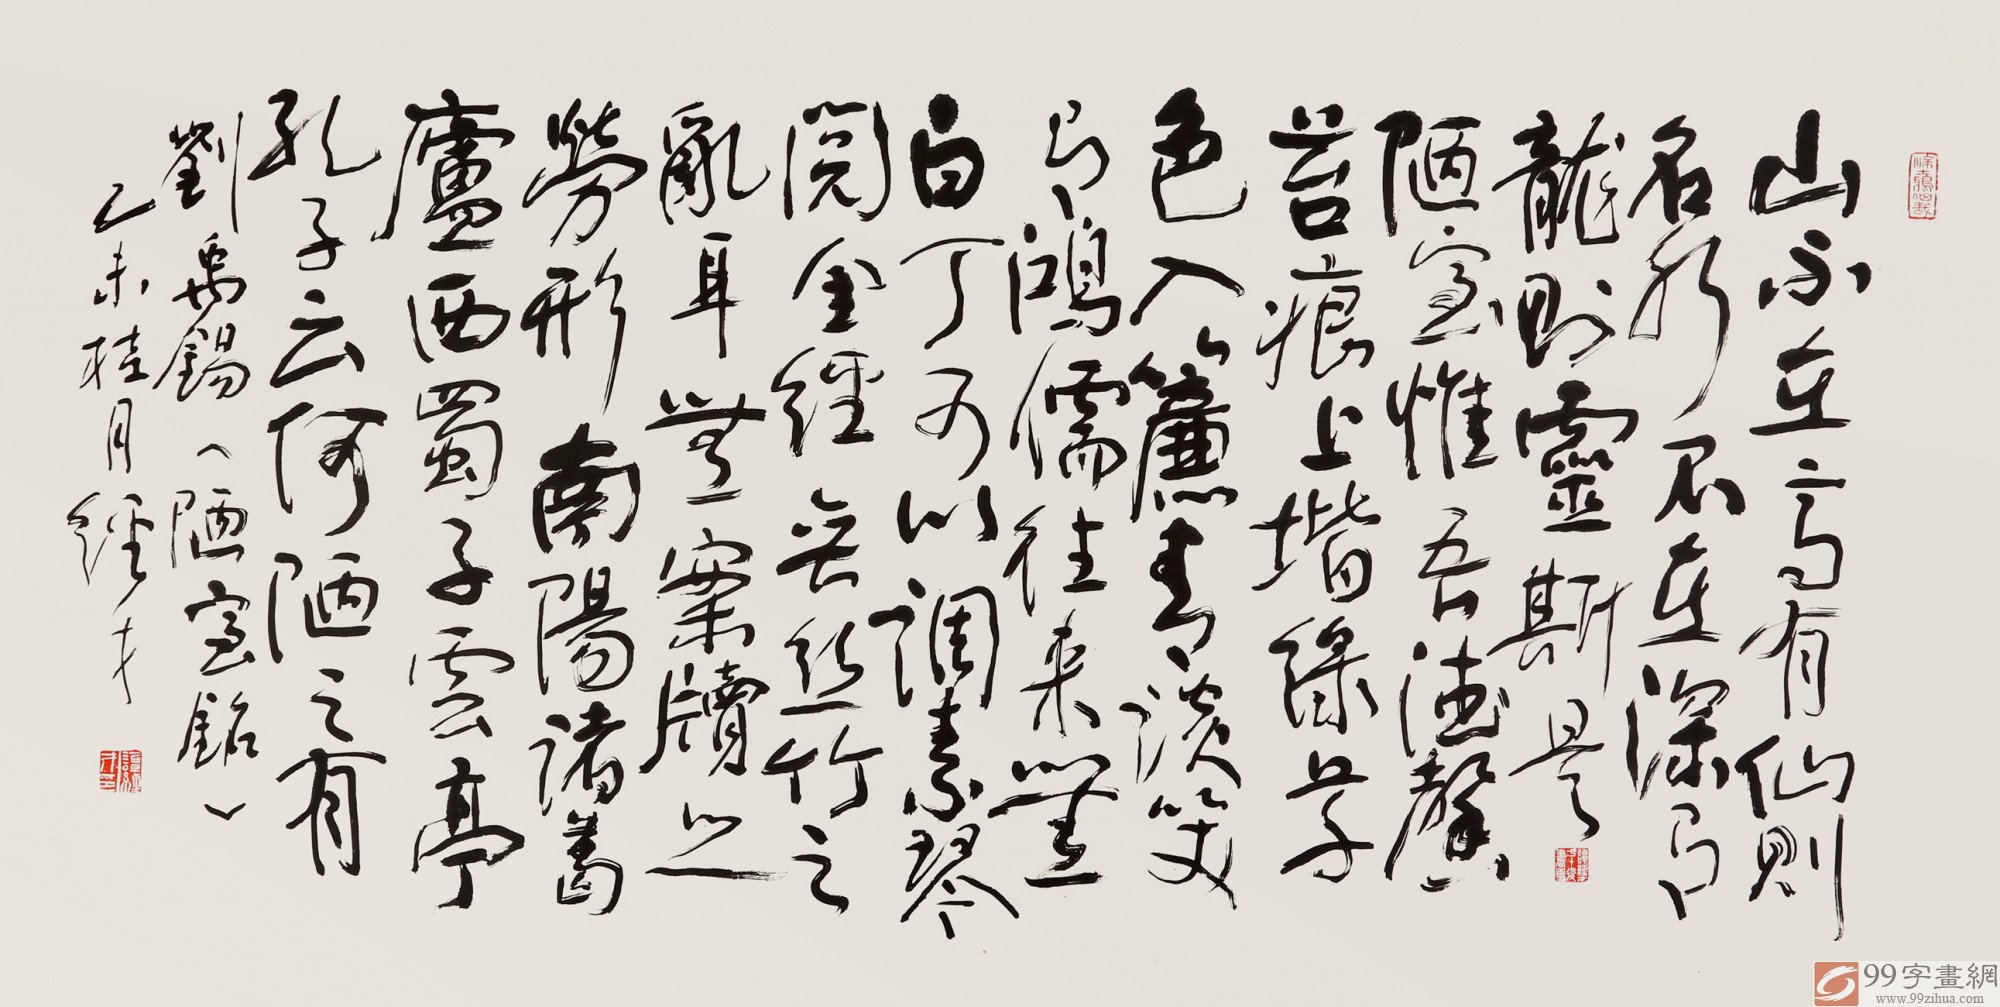 山不在高有仙則
名水不在深有
龍則靈斯是
陋室惟吾德馨
苔痕上堦綠草
色入簾青談笑
有鴻儒往來無
白丁可以調素琴
閱金經無丝竹之
亂耳無案牘之
勞形南陽諸葛
廬西蜀子雲亭
孔子云何陋之有
劉禹錫〈陋室銘〉
乙未桂月經才
99字畫網
www.99zihua.com